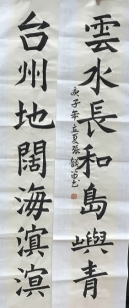 台州地闊海溟溟
雲水長和島嶼青
庚子年立夏張